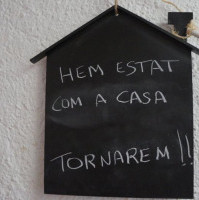 HEM ESTAT
COM A CASA
TORNAREM!!